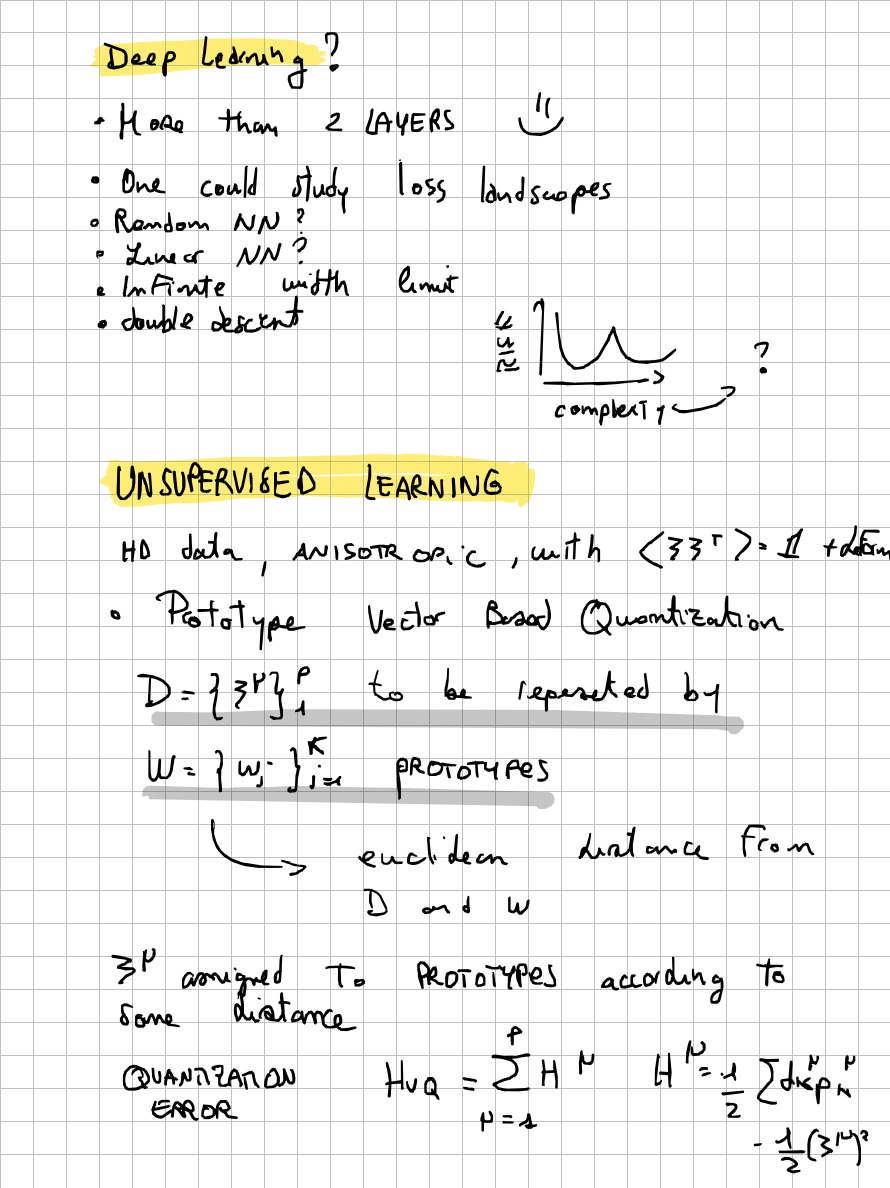 Deep Learning?
• More than 2 LAYERS
• One could study loss landscapes
• Random NN?
• Linear NN?
• Infinite width limit
• double descent
?
complexity
UNSUPERVISED LEARNING
HD data, ANISOTROPIC, with <ξξᵀ> = 𝟙 +
• Prototype Vector Based Quantization
D = {ξ^μ}_1^P to be repeseted by
W = {w_j}_{j=1}^K PROTOTYPES
euclidean distance from
D and W
ξ^μ assigned To PROTOTYPES according to
some distance
QUANTIZATION
ERROR
H_VQ = Σ_{μ=1}^P H^μ H^μ = 1/2 Σ d_K^μ p_K^μ
- 1/2 (ξ^μ)²